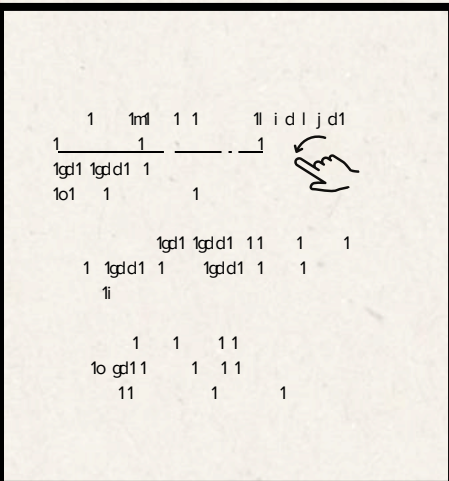 1 1m1 1 1 1l i d l j d1
1 1 1
1gd1 1gdd1 1
1o1 1 1
1gd1 1gdd1 1 1 1 1
1 1gdd1 1 1gdd1 1 1
1i
1 1 1 1
1o gd1 1 1 1 1
1 1 1 1